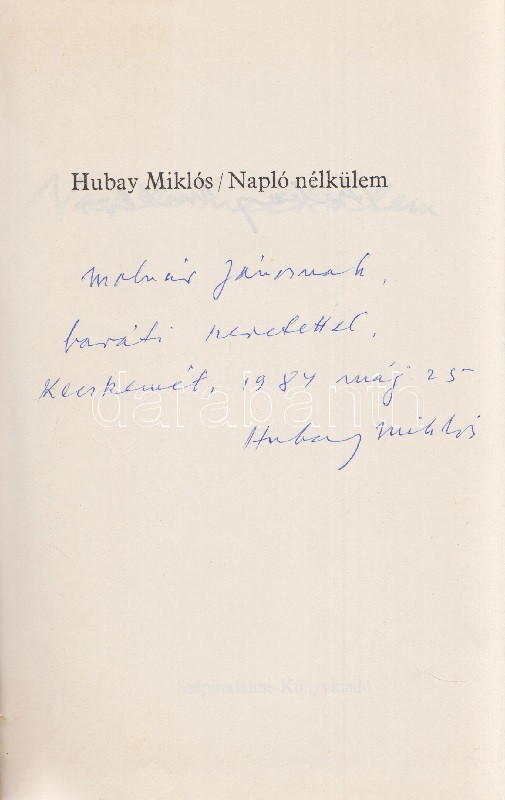 Hubay Miklós / Napló nélkülem
Molnár Jánosnak,
baráti szeretettel,
Kecskemét, 1984 máj 25
Hubay Miklós
darabanth
Szépirodalmi Könyvkiadó